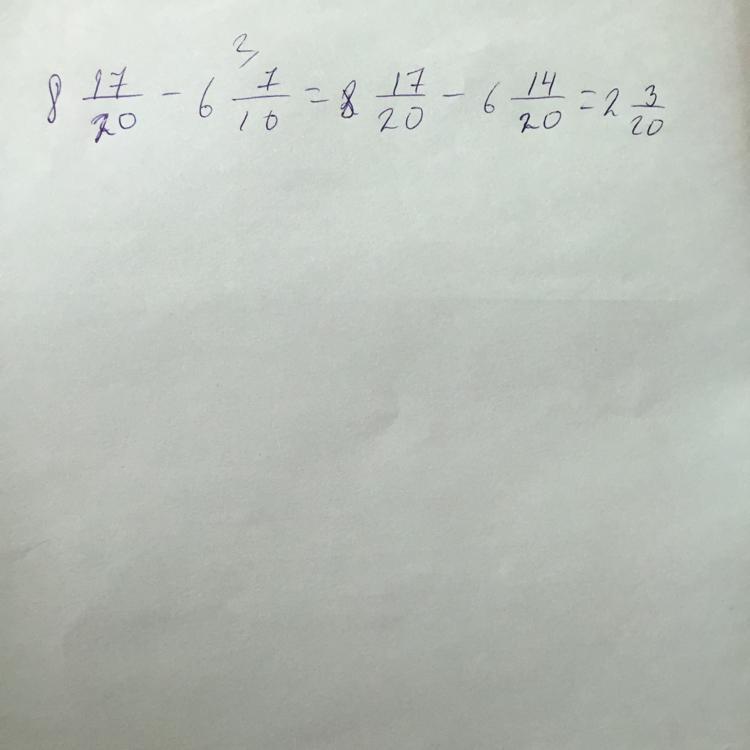 8 17/20 - 6 7/10 ²⁾ = 8 17/20 - 6 14/20 = 2 3/20